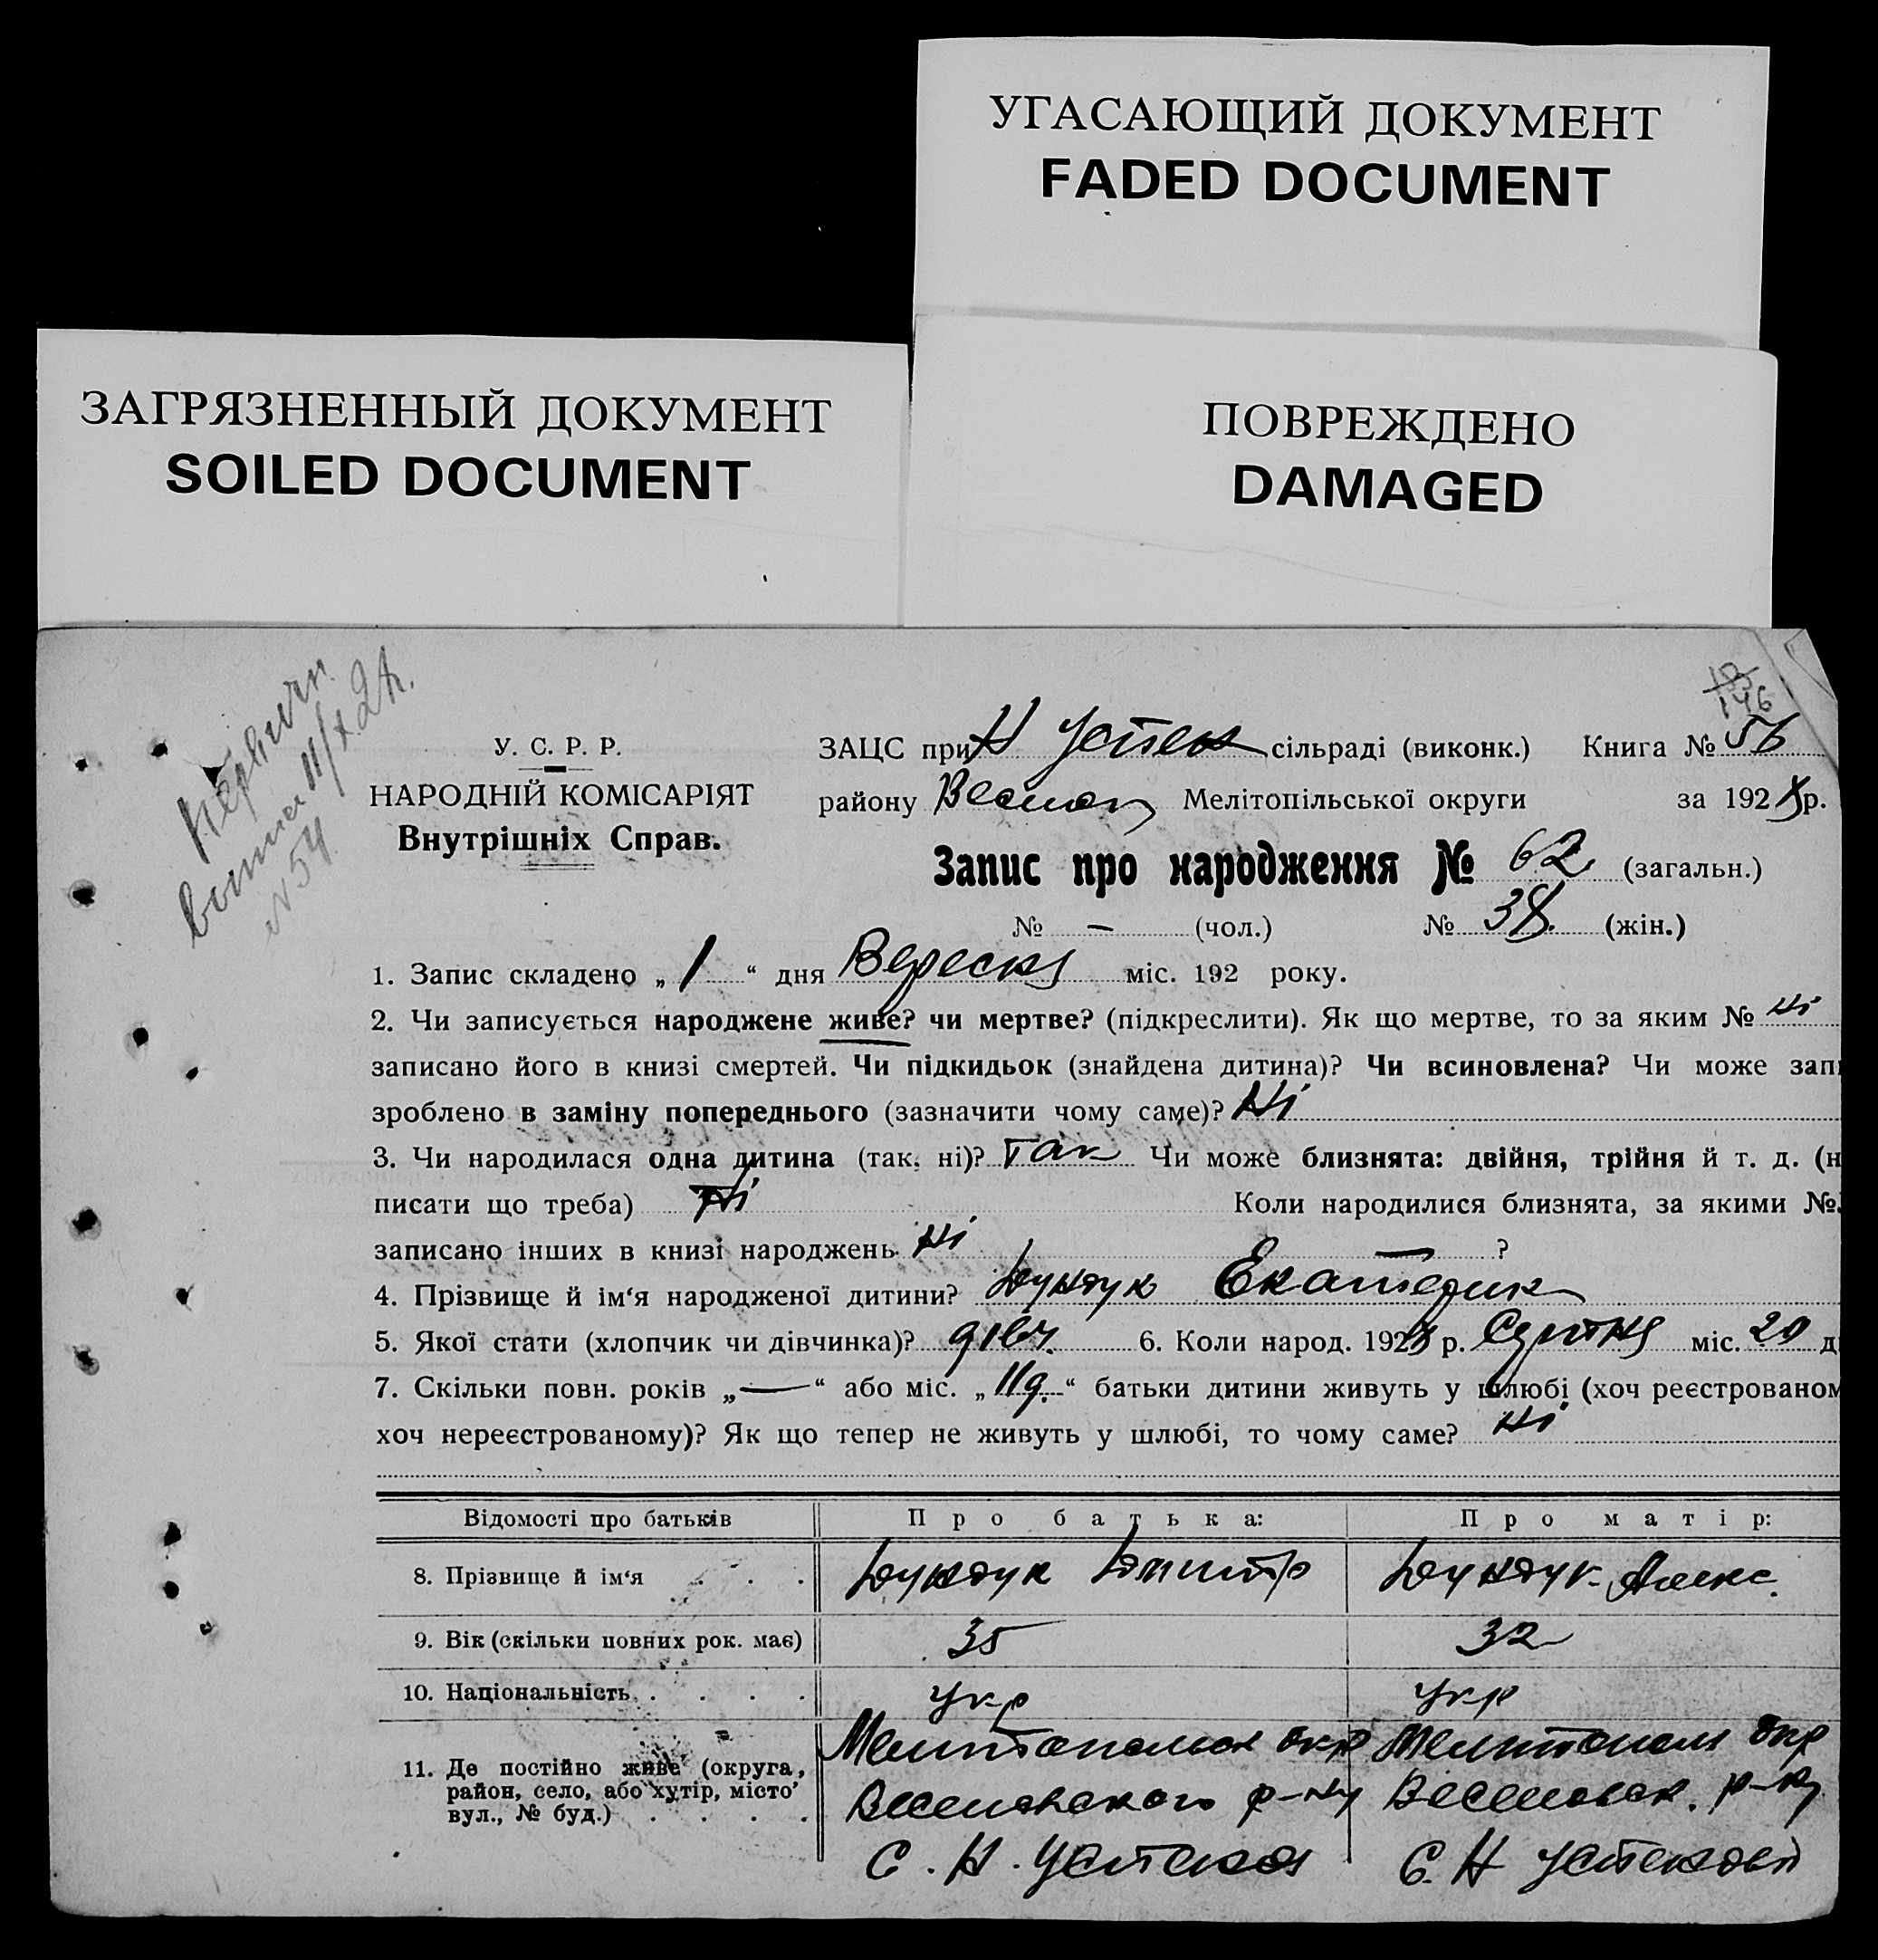 УГАСАЮЩИЙ ДОКУМЕНТ
FADED DOCUMENT
ЗАГРЯЗНЕННЫЙ ДОКУМЕНТ
SOILED DOCUMENT
ПОВРЕЖДЕНО
DAMAGED
146
У. С. Р. Р.
НАРОДНІЙ КОМІСАРІЯТ
Внутрішніх Справ.
ЗАЦС при Н Успен сільраді (виконк.) Книга №
району Мелітопільської округи за 192 р.
Запис про народження № 62 (загальн.)
№ — (чол.) № 38. (жін.)
1. Запис складено „ 1 “ дня Вересня міс. 192 року.
2. Чи записується народжене живе? чи мертве? (підкреслити). Як що мертве, то за яким № Ні
записано його в книзі смертей. Чи підкидьок (знайдена дитина)? Чи всиновлена? Чи може зап
зроблено в заміну попереднього (зазначити чому саме)? Ні
3. Чи народилася одна дитина (так, ні)? Так Чи може близнята: двійня, трійня й т. д. (н
писати що треба) Ні Коли народилися близнята, за якими №
записано інших в книзі народжень Ні — ?
4. Прізвище й ім‘я народженої дитини? Дундук Екатерин
5. Якої стати (хлопчик чи дівчинка)? дівч. 6. Коли народ. 192 р. Серпня міс. 20 д
7. Скільки повн. років „—“ або міс. „11“ батьки дитини живуть у шлюбі (хоч реєстрованом
хоч нереєстрованому)? Як що тепер не живуть у шлюбі, то чому саме? Ні
Відомості про батьків Про батька: Про матір:
8. Прізвище й ім‘я . . . Дундук Дмитр Дундук Алекс.
9. Вік (скільки повних рок. має) 35 32
10. Національність . . . . укр укр
11. Де постійно живе (округа, Мелитопольск окр Мелитополь окр
район, село, або хутір, місто Веселовского р-ну Веселовск. р-ну
вул., № буд.) . . . . С. Н. Успенка С. Н Успеновці